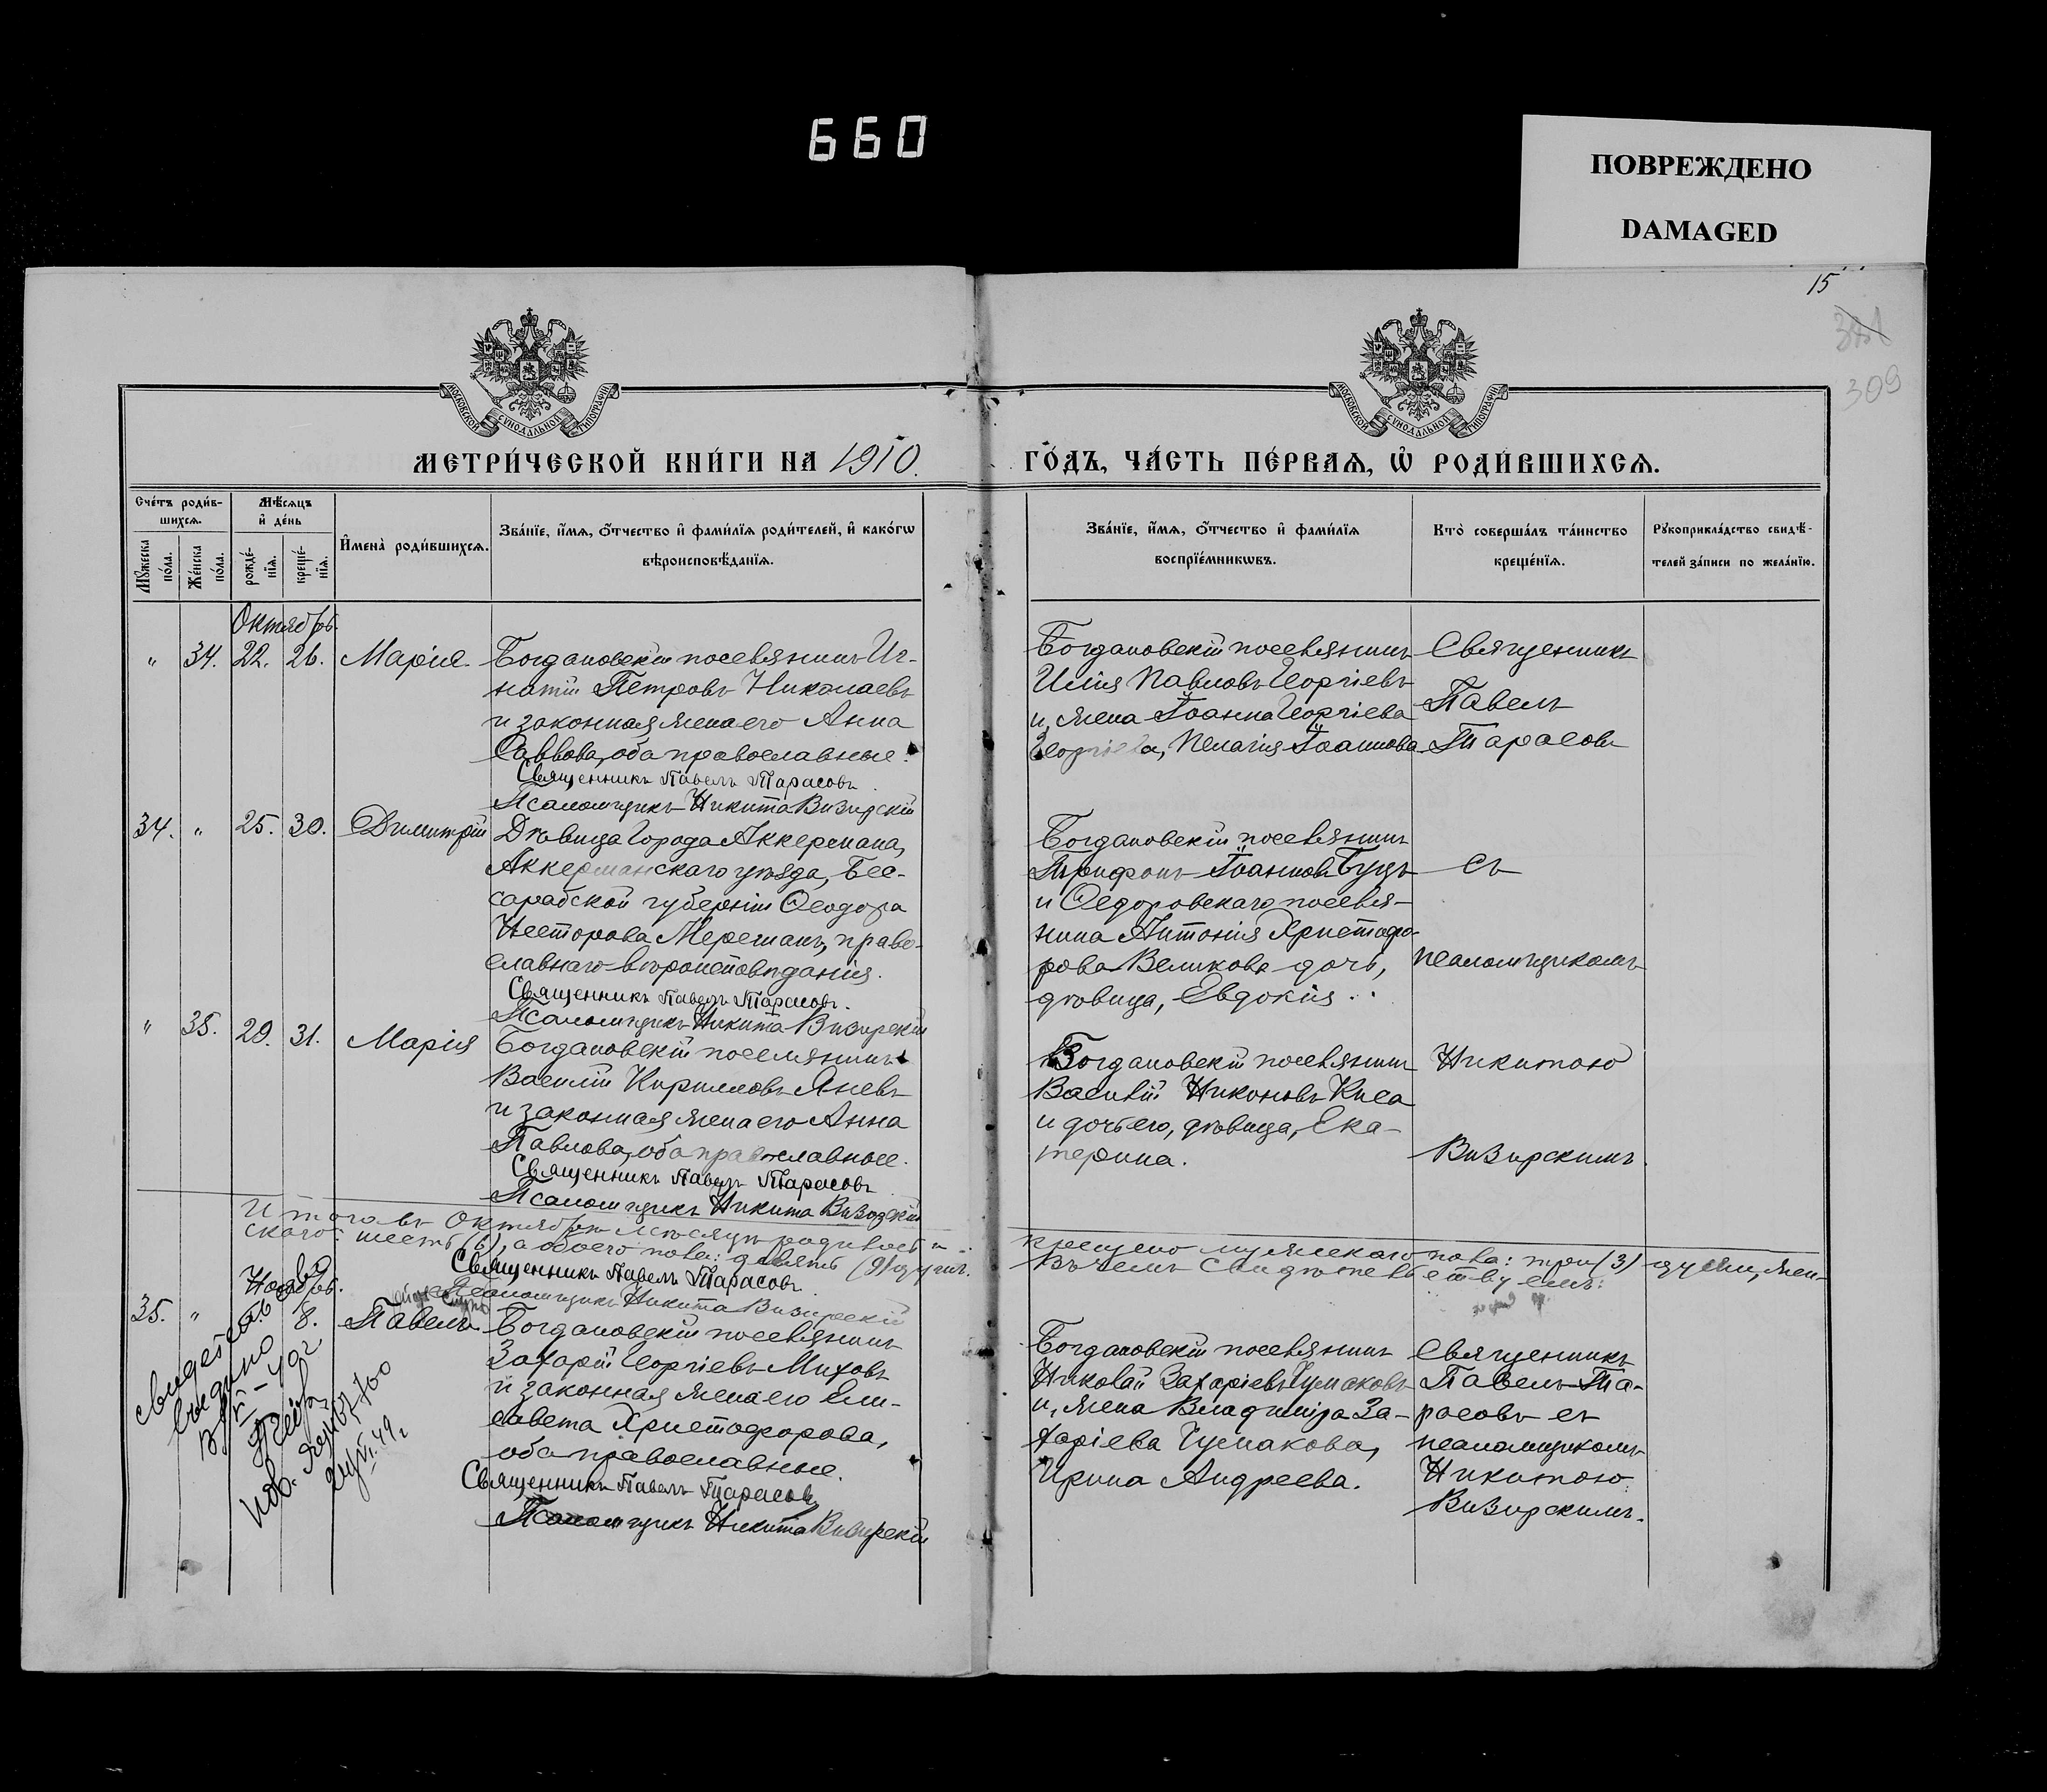 660
ПОВРЕЖДЕНО
DAMAGED
15
309
МОСКОВСКОЙ СѴНОДАЛЬНОЙ ТИПОГРАФІИ
МОСКОВСКОЙ СѴНОДАЛЬНОЙ ТИПОГРАФІИ
МЕТРИ́ЧЕСКОЙ КНИ́ГИ НА 1910.
ГО́ДЪ, ЧА́СТЬ ПЕ́РВАѦ, Ѡ҆ РОДИ́ВШИХСѦ.
Сче́тъ роди́в-
шихсѧ.
Мѣ́сѧцъ
и҆ де́нь
Мꙋ́жеска по́ла.
Же́нска по́ла.
рожде́-
нїѧ.
креще́-
нїѧ.
И҆мена̀ роди́вшихсѧ.
Зва́нїе, и҆́мѧ, ѻ҆́тчество и҆ фами́лїѧ роди́телей, и҆ како́гѡ
вѣроисповѣ́данїѧ.
Зва́нїе, и҆́мѧ, ѻ҆́тчество и҆ фами́лїѧ
воспрїе́мникѡвъ.
Кто̀ соверша́лъ та́инство
креще́нїѧ.
Рꙋкоприкла́дство свидѣ́-
телей за́писи по жела́нїю.
Октябрь.
" 34. 22. 26. Марія
Богдановскій поселянинъ Иг-
натій Петровъ Николаевъ
и законная жена его Анна
Саввова, оба православные.
Священникъ Павелъ Тарасовъ.
Псаломщикъ Никита Визирскій
Богдановскій поселянинъ
Илія Павловъ Георгіевъ
и, жена Іоанна Георгіева
Георгіева, Пелагія Іоаннова
Священникъ
Павелъ
Тарасовъ
34. " 25. 30. Димитрій
Дѣвица города Аккермана,
Аккерманскаго уѣзда, Бес-
сарабской губерніи Ѳеодора
Несторова Мерешанъ, право-
славнаго вѣроисповѣданія.
Священникъ Павелъ Тарасовъ.
Псаломщикъ Никита Визирскій
Богдановскій поселянинъ
Трифонъ Іоанновъ
и Ѳедоровскаго поселя-
нина Антонія Христофо-
рова Великова дочь,
дѣвица, Евдокія.
съ
псаломщикомъ
" 35. 29. 31. Марія
Богдановскій поселянинъ
Василій Кирилловъ Яневъ
и законная жена его Анна
Павлова, оба православные.
Священникъ Павелъ Тарасовъ
Псаломщикъ Никита Визирскій
Богдановскій поселянинъ
Василій Никоновъ Киса
и дочь его, дѣвица, Ека-
терина.
Никитою
Визирскимъ.
Итого въ Октябрѣ мѣсяцѣ родилось и
крещено мужескаго пола: три (3) души, жен-
скаго: шесть (6), а обоего пола: девять (9) душъ.
Въ чемъ свидѣтельствуемъ:
Священникъ Павелъ Тарасовъ.
Псаломщикъ Никита Визирскій
Ноябрь.
35. " 8. Павелъ
Богдановскій поселянинъ
Захарій Георгіевъ Миховъ
и законная жена его Ели-
савета Христофорова,
оба православные.
Священникъ Павелъ Тарасовъ
Псаломщикъ Никита Визирскій
Богдановскій поселянинъ
Николай Захаріевъ Чумаковъ
и, жена Владиміра За-
харіева Чумакова,
Ирина Андреева.
Священникъ
Павелъ Та-
расовъ съ
псаломщикомъ
Никитою
Визирскимъ.